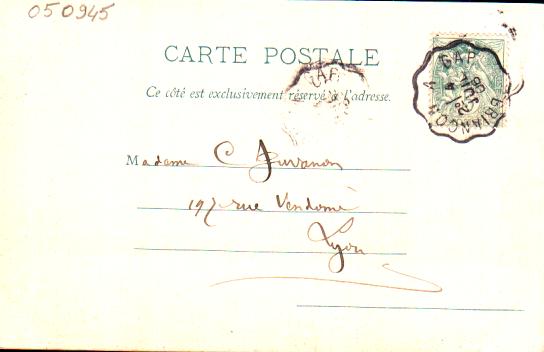 050945
CARTE POSTALE
Ce côté est exclusivement réservé à l'adresse.
GAP
GAP A BRIANÇON
Madame C
197 rue Vendome
Lyon